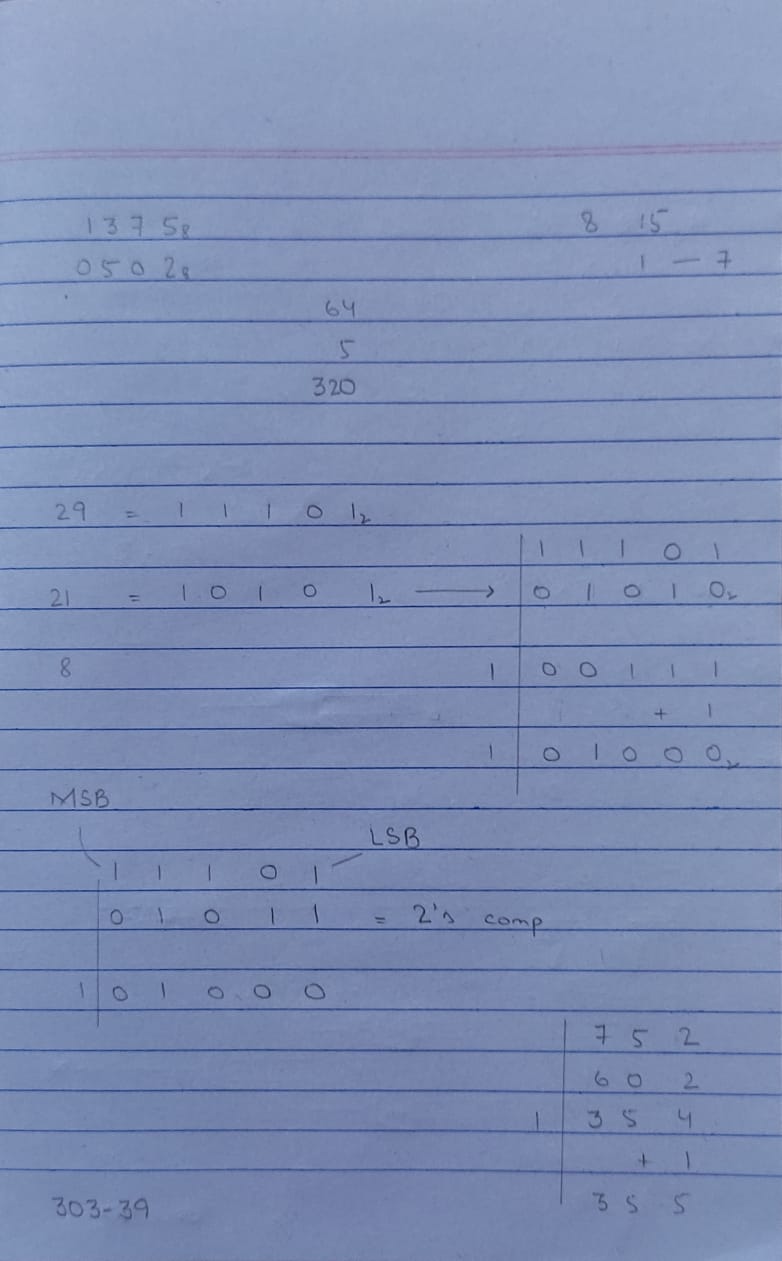 1375₈ 8 15
0502₈ 1 — 7
64
5
320
29 = 11101₂
11101
21 = 10101₂ → 01010₂
8 1 00111
+ 1
1 01000₂
MSB
LSB
11101
01011 = 2's comp
1 01000
752
602
1 354
+ 1
303-39 355